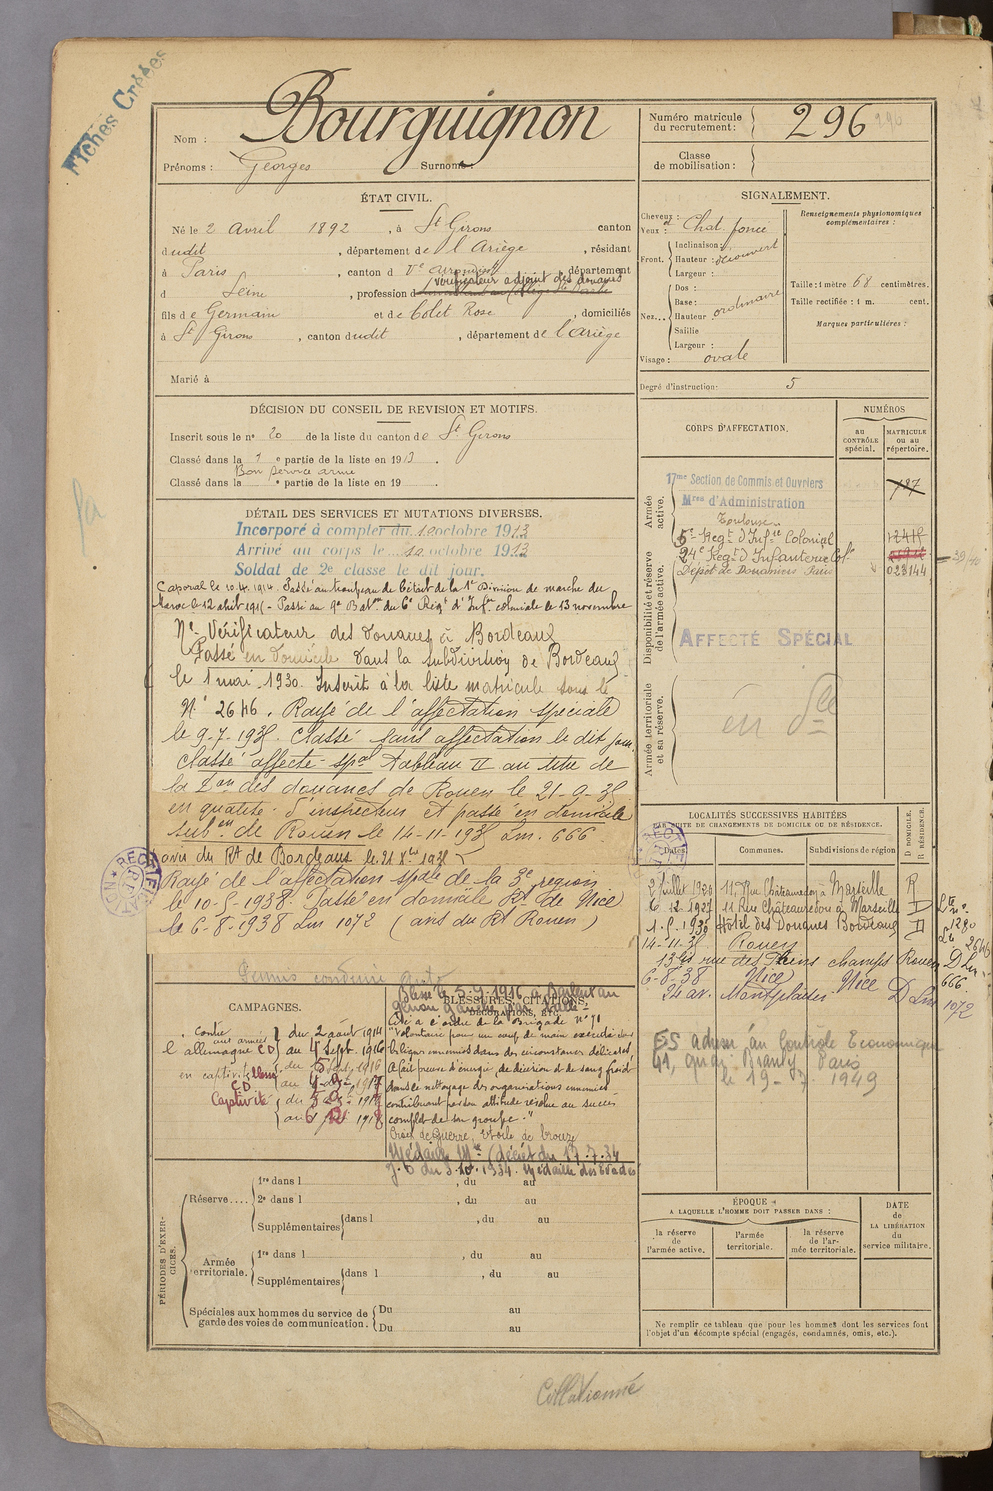 Fiches Créées
Nom : Bourguignon
Prénoms : Georges Surnoms :
ÉTAT CIVIL.
Né le 2 Avril 1892, à St Girons canton
dudit, département de l'Ariège, résidant
à Paris, canton d Ve arrondist, département
vérificateur adjoint des douanes
d Seine, profession d
fils de Germain et de Bolet Rose, domiciliés
à St Girons, canton dudit, département de l'Ariège
Marié à
DÉCISION DU CONSEIL DE REVISION ET MOTIFS.
Inscrit sous le n° 20 de la liste du canton de St Girons
Classé dans la 1 e partie de la liste en 1913.
Bon service armé
Classé dans la e partie de la liste en 19 .
DÉTAIL DES SERVICES ET MUTATIONS DIVERSES.
Incorporé à compter du 10 octobre 1913
Arrivé au corps le 10 octobre 1913
Soldat de 2e classe le dit jour.
Caporal le 10.4.1914. Passé au troupeau de bétail de la 1e Division de marche du
Maroc le 12 août 191 - Passé au 9e Baton du 6e Régt d'Infie coloniale le 13 novembre
Nt Vérificateur des douanes à Bordeaux
Passé en domicile dans la subdivision de Bordeaux
le 1 mai 1930. Inscrit à la liste matricule sous le
N° 2646. Rayé de l'affectation spéciale
le 9-7-1935. Classé sans affectation le dit jour
classé affecté spal Tableau II au titre de
la Don des douanes de Rouen le 21-9-35
en qualité d'inspecteur et passé en domicile
subon de Rouen le 14-11-1935 Lm. 666
avis du Rt de Bordeaux le 21 8bre 1935
Rayé de l'affectation spale de la 3e région
le 10-5-1938. Passé en domicile Rt de Nice
le 6-8-1938 Lm 1072 (avis du Rt Rouen)
Permis conduire Auto
CAMPAGNES.
Contre du 2 août 1914
l'allemagne CD au 4 Sept. 1916
en captivité blessé du 5 Sept. 1916
CD au 4-9-1917
Captivité du 5-9-1917
au 6 12 1918
BLESSURES, CITATIONS, DÉCORATIONS, ETC.
Blessé le 5-9-1916 à Barleux au
genou gauche par balle
Cité à l'ordre de la Brigade N° 71
"Volontaire pour un coup de main exécuté dans
les lignes ennemies dans des circonstances délicates,
a fait preuve d'énergie, de décision et de sang froid
dans le nettoyage des organisations ennemies
contribuant par son attitude résolue au succès
complet de son groupe."
Croix de Guerre, Etoile de bronze
Médaille Mre (décret du 17.7.34
J.O du 3.10.1934. Médaille des évadés
PÉRIODES D'EXERCICES.
Réserve....
1re dans l , du au
2e dans l , du au
Supplémentaires dans l , du au
Armée territoriale.
1re dans l , du au
Supplémentaires dans l , du au
Spéciales aux hommes du service de garde des voies de communication.
Du au
Du au
Numéro matricule du recrutement : 296 296
Classe de mobilisation :
SIGNALEMENT.
Cheveux et Yeux : Chat. foncé
Front. Inclinaison :
Hauteur : découvert
Largeur :
Nez... Dos :
Base : ordinaire
Hauteur
Saillie
Largeur :
Visage : ovale
Renseignements physionomiques complémentaires :
Taille : 1 mètre 68 centimètres.
Taille rectifiée : 1 m. cent.
Marques particulières :
Degré d'instruction : 5
CORPS D'AFFECTATION.
NUMÉROS
au CONTRÔLE spécial.
MATRICULE ou au répertoire.
Armée active.
17me Section de Commis et Ouvriers 787
Mres d'Administration
Toulouse
5e Régt d'Infie Colonial 12415
24e Régt d'Infanterie Cole 39/40
Dépôt de Douaniers Paris 023144
Disponibilité et réserve de l'armée active.
AFFECTÉ SPÉCIAL
Armée territoriale et sa réserve.
en Sté
LOCALITÉS SUCCESSIVES HABITÉES
PAR SUITE DE CHANGEMENTS DE DOMICILE OU DE RÉSIDENCE.
Dates. Communes. Subdivisions de région D DOMICILE. R RÉSIDENCE.
2 Juillet 1920 11, Rue Châteauredon à Marseille R
6-12-1927 11 Rue Châteauredon à Marseille D Lte n° 1280
1-5-1930 Hôtel des Douanes Bordeaux D Lte 2646
14-11-35 Rouen
13 bis rue des Pleins champs Rouen D Lm 666
6-8-38 Nice Nice
34 av. Montplaisir D Lm 1072
ES admn au Contrôle Economique
41, quai Branly Paris
le 19-7 1949
ÉPOQUE
A LAQUELLE L'HOMME DOIT PASSER DANS :
la réserve de l'armée active.
l'armée territoriale.
la réserve de l'armée territoriale.
DATE de LA LIBÉRATION du service militaire.
Ne remplir ce tableau que pour les hommes dont les services font
l'objet d'un décompte spécial (engagés, condamnés, omis, etc.).
Collationné